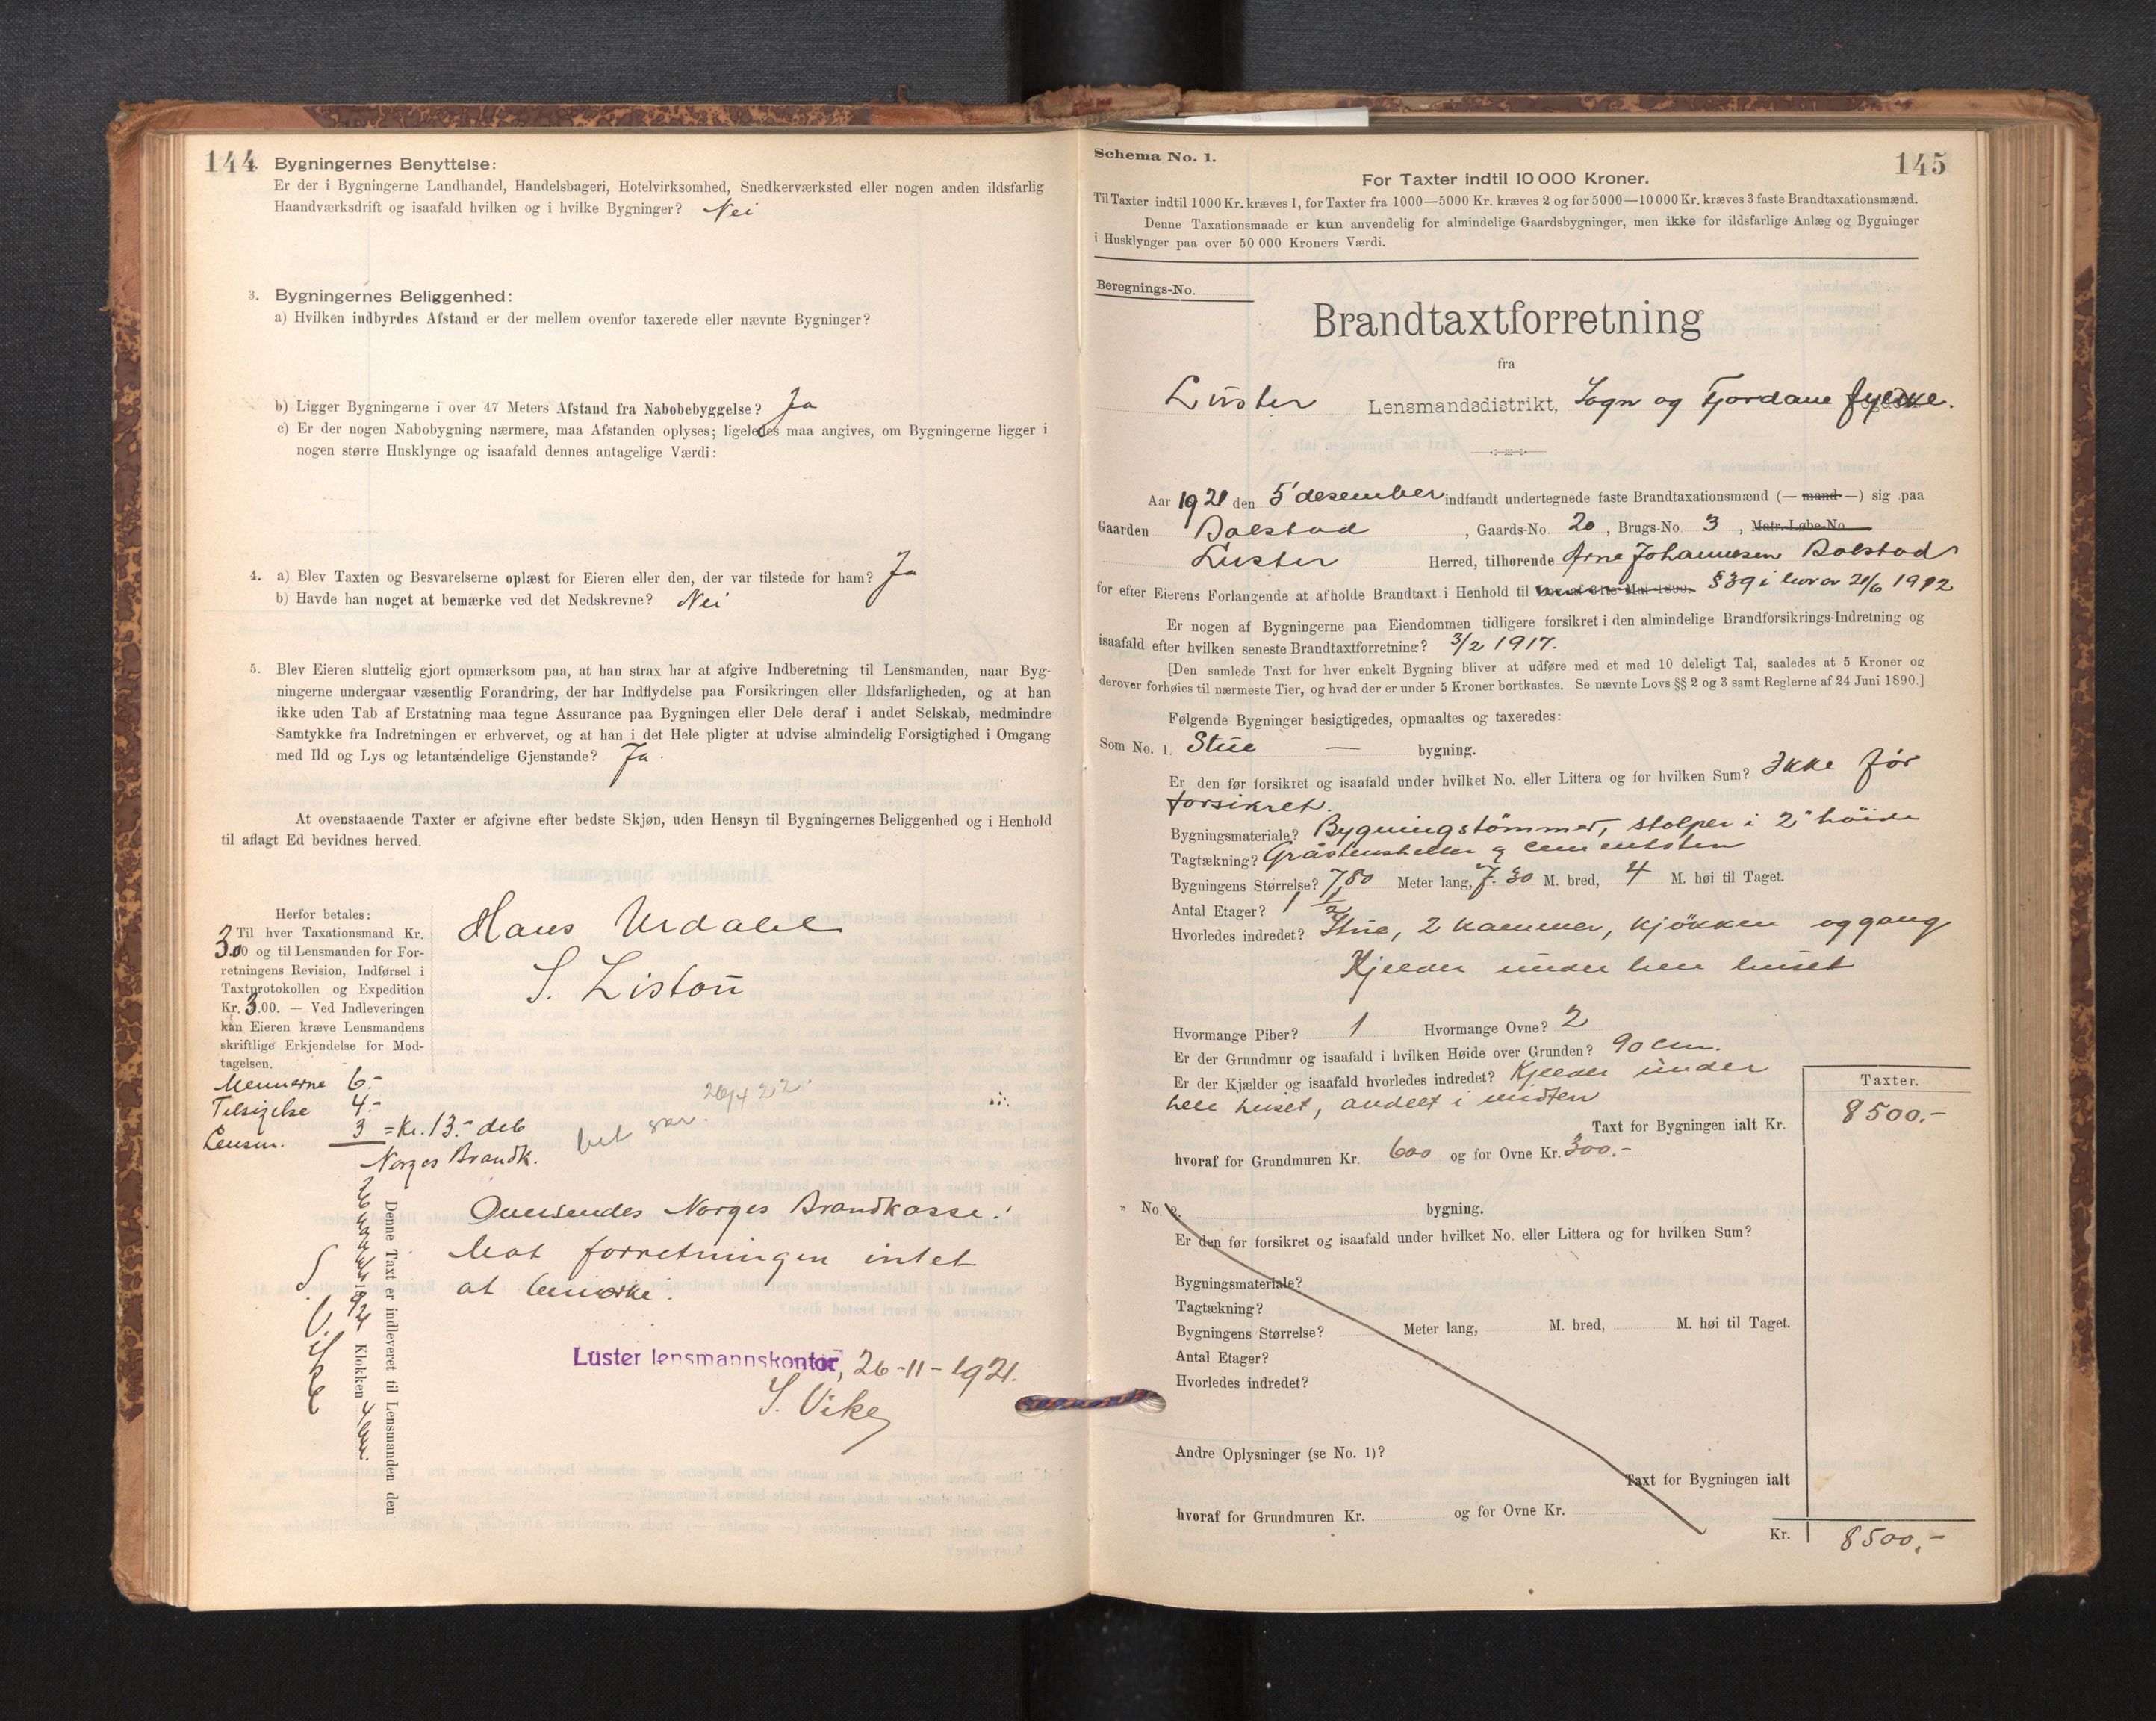 144
Bygningernes Benyttelse:
Er der i Bygningerne Landhandel, Handelsbageri, Hotelvirksomhed, Snedkerværksted eller nogen anden ildsfarlig
Haandværksdrift og isaafald hvilken og i hvilke Bygninger? Nei
3. Bygningernes Beliggenhed:
a) Hvilken indbyrdes Afstand er der mellem ovenfor taxerede eller nævnte Bygninger?
b) Ligger Bygningerne i over 47 Meters Afstand fra Nabobebyggelse? Ja
c) Er der nogen Nabobygning nærmere, maa Afstanden oplyses; ligeledes maa angives, om Bygningerne ligger i
nogen større Husklynge og isaafald dennes antagelige Værdi:
4. a) Blev Taxten og Besvarelserne oplæst for Eieren eller den, der var tilstede for ham? Ja
b) Havde han noget at bemærke ved det Nedskrevne? Nei
5. Blev Eieren sluttelig gjort opmærksom paa, at han strax har at afgive Indberetning til Lensmanden, naar Byg-
ningerne undergaar væsentlig Forandring, der har Indflydelse paa Forsikringen eller Ildsfarligheden, og at han
ikke uden Tab af Erstatning maa tegne Assurance paa Bygningen eller Dele deraf i andet Selskab, medmindre
Samtykke fra Indretningen er erhvervet, og at han i det Hele pligter at udvise almindelig Forsigtighed i Omgang
med Ild og Lys og letantændelige Gjenstande? Ja.
At ovenstaaende Taxter er afgivne efter bedste Skjøn, uden Hensyn til Bygningernes Beliggenhed og i Henhold
til aflagt Ed bevidnes herved.
Hans Urdahl
S. Listou
Herfor betales:
Til hver Taxationsmand Kr.
3.00 og til Lensmanden for For-
retningens Revision, Indførsel i
Taxtprotokollen og Expedition
Kr. 3.00. — Ved Indleveringen
kan Eieren kræve Lensmandens
skriftlige Erkjendelse for Mod-
tagelsen.
Mennerne 6.-
Tilsigelse 4.-
Lensm. 3 = Kr. 13.- deb
Norges Brandk.
26/4 22.
Denne Taxt er indleveret til Lensmanden den
Klokken
S. Vike
Oversendes Norges Brandkasse!
Mot forretningen intet
at bemerke.
Luster lensmannskontor, 26-11-1921.
S. Vike
145
Schema No. 1.
For Taxter indtil 10 000 Kroner.
Til Taxter indtil 1000 Kr. kræves 1, for Taxter fra 1000—5000 Kr. kræves 2 og for 5000—10 000 Kr. kræves 3 faste Brandtaxationsmænd.
Denne Taxationsmaade er kun anvendelig for almindelige Gaardsbygninger, men ikke for ildsfarlige Anlæg og Bygninger
i Husklynger paa over 50 000 Kroners Værdi.
Beregnings-No.
Brandtaxtforretning
fra
Luster Lensmandsdistrikt, Sogn og Fjordane fylke.
Aar 1921 den 5 desember indfandt undertegnede faste Brandtaxationsmænd (— mand —) sig paa
Gaarden Bolstad, Gaards-No. 20, Brugs-No. 3, Matr. Løbe-No.
Luster Herred, tilhørende Arne Johannesen Bolstad
for efter Eierens Forlangende at afholde Brandtaxt i Henhold til § 39 i lov av 21/6 1912
Er nogen af Bygningerne paa Eiendommen tidligere forsikret i den almindelige Brandforsikrings-Indretning og
isaafald efter hvilken seneste Brandtaxtforretning? 3/2 1917.
[Den samlede Taxt for hver enkelt Bygning bliver at udføre med et med 10 deleligt Tal, saaledes at 5 Kroner og
derover forhøies til nærmeste Tier, og hvad der er under 5 Kroner bortkastes. Se nævnte Lovs §§ 2 og 3 samt Reglerne af 24 Juni 1890.]
Følgende Bygninger besigtigedes, opmaaltes og taxeredes:
Som No. 1. Stue — bygning.
Er den før forsikret og isaafald under hvilket No. eller Littera og for hvilken Sum? Ikke før
forsikret.
Bygningsmateriale? Bygningstømmer, stolper i 2' høide
Tagtækning? Gråstensheller og cementsten
Bygningens Størrelse? 7,80 Meter lang, 7.30 M. bred, 4 M. høi til Taget.
Antal Etager? 1 1/2
Hvorledes indredet? Stue, 2 kammer, kjøkken og gang
Kjelder under hele huset
Hvormange Piber? 1 Hvormange Ovne? 2
Er der Grundmur og isaafald i hvilken Høide over Grunden? 90 cm.
Er der Kjælder og isaafald hvorledes indredet? Kjelder under
hele huset, andelt i midten
Taxter.
Taxt for Bygningen ialt Kr. 8500.-
hvoraf for Grundmuren Kr. 600 og for Ovne Kr. 300.-
" No. 2. bygning.
Er den før forsikret og isaafald under hvilket No. eller Littera og for hvilken Sum?
Bygningsmateriale?
Tagtækning?
Bygningens Størrelse? Meter lang, M. bred, M. høi til Taget.
Antal Etager?
Hvorledes indredet?
Andre Oplysninger (se No. 1)?
Taxt for Bygningen ialt
hvoraf for Grundmuren Kr. og for Ovne Kr.
Kr. 8500.-